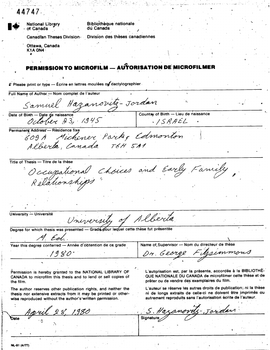 44747
National Library of Canada
Bibliothèque nationale du Canada
Canadian Theses Division
Division des thèses canadiennes
Ottawa, Canada
K1A 0N4
PERMISSION TO MICROFILM — AUTORISATION DE MICROFILMER
• Please print or type — Écrire en lettres moulées ou dactylographier
Full Name of Author — Nom complet de l'auteur
Samuel Hazanovitz-Jordan
Date of Birth — Date de naissance
Country of Birth — Lieu de naissance
October 23, 1945
ISRAEL
Permanent Address — Résidence fixe
609A Michener Park, Edmonton
Alberta, Canada T6H 5A1
Title of Thesis — Titre de la thèse
Occupational Choices and Early Family
Relationships
University — Université
University of Alberta
Degree for which thesis was presented — Grade pour lequel cette thèse fut présentée
M. Ed.
Year this degree conferred — Année d'obtention de ce grade
Name of Supervisor — Nom du directeur de thèse
1980
Dr. George Fitzsimmons
Permission is hereby granted to the NATIONAL LIBRARY OF
CANADA to microfilm this thesis and to lend or sell copies of
the film.
L'autorisation est, par la présente, accordée à la BIBLIOTHÈ-
QUE NATIONALE DU CANADA de microfilmer cette thèse et
de prêter ou de vendre des exemplaires du film.
The author reserves other publication rights, and neither the
thesis nor extensive extracts from it may be printed or other-
wise reproduced without the author's written permission.
L'auteur se réserve les autres droits de publication; ni la thèse
ni de longs extraits de celle-ci ne doivent être imprimés ou
autrement reproduits sans l'autorisation écrite de l'auteur.
Date
Signature
April 23, 1980
S. Hazanovitz-Jordan